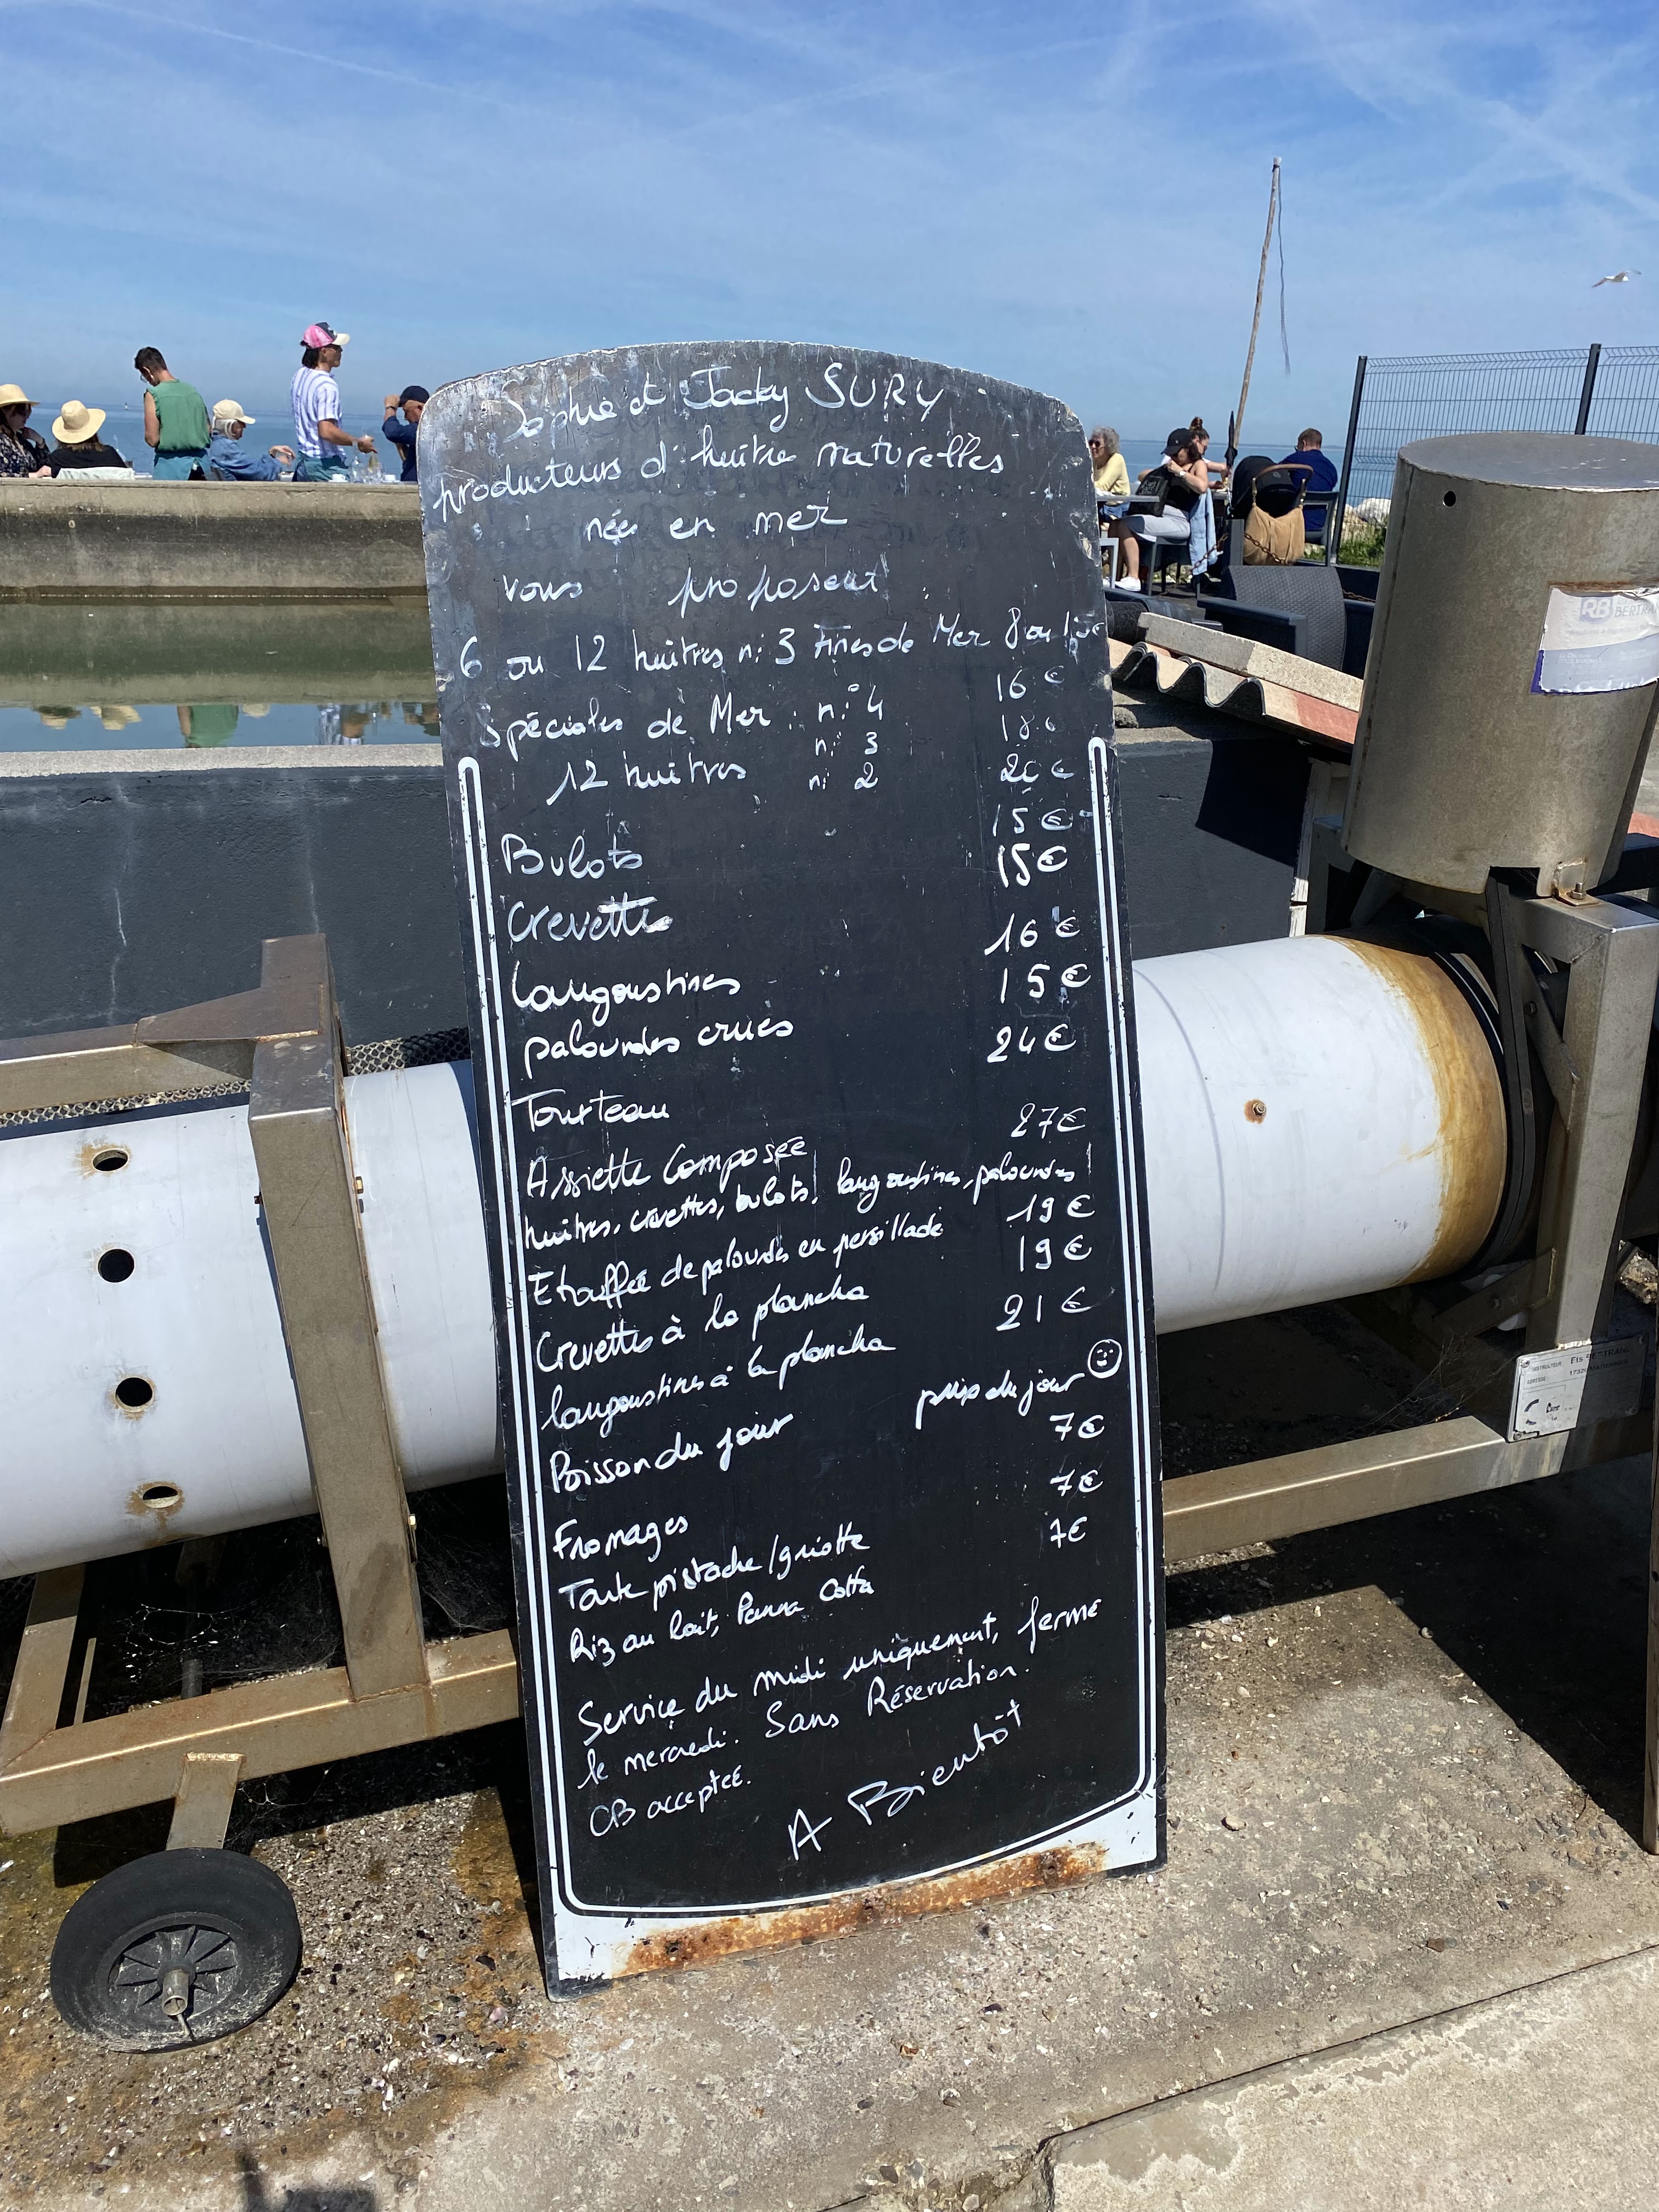 Sophie et Jacky SURY
producteurs d'huître naturelles
née en mer
vous proposent :
6 ou 12 huîtres n: 3 Fines de Mer 8 ou
Spéciales de Mer : n: 4 16 €
n: 3 18 €
12 huîtres n: 2 €
Bulots 15 €
Crevette 15 €
Langoustines 16 €
palourdes crues 15 €
Tourteau 24 €
Assiette Composée 27 €
huîtres, crevettes, bulots, langoustines, palourdes
Etouffée de palourdes en persillade 19 €
Crevettes à la plancha 19 €
langoustines à la plancha 21 €
Poisson du jour prix du jour
Fromages 7 €
Tarte pistache / griotte 7 €
Riz au lait, Panna Cotta 7 €
Service du midi uniquement, fermé
le mercredi. Sans Réservation.
CB acceptée.
A Bientôt
RB BERTRA
Ets BERTRAND